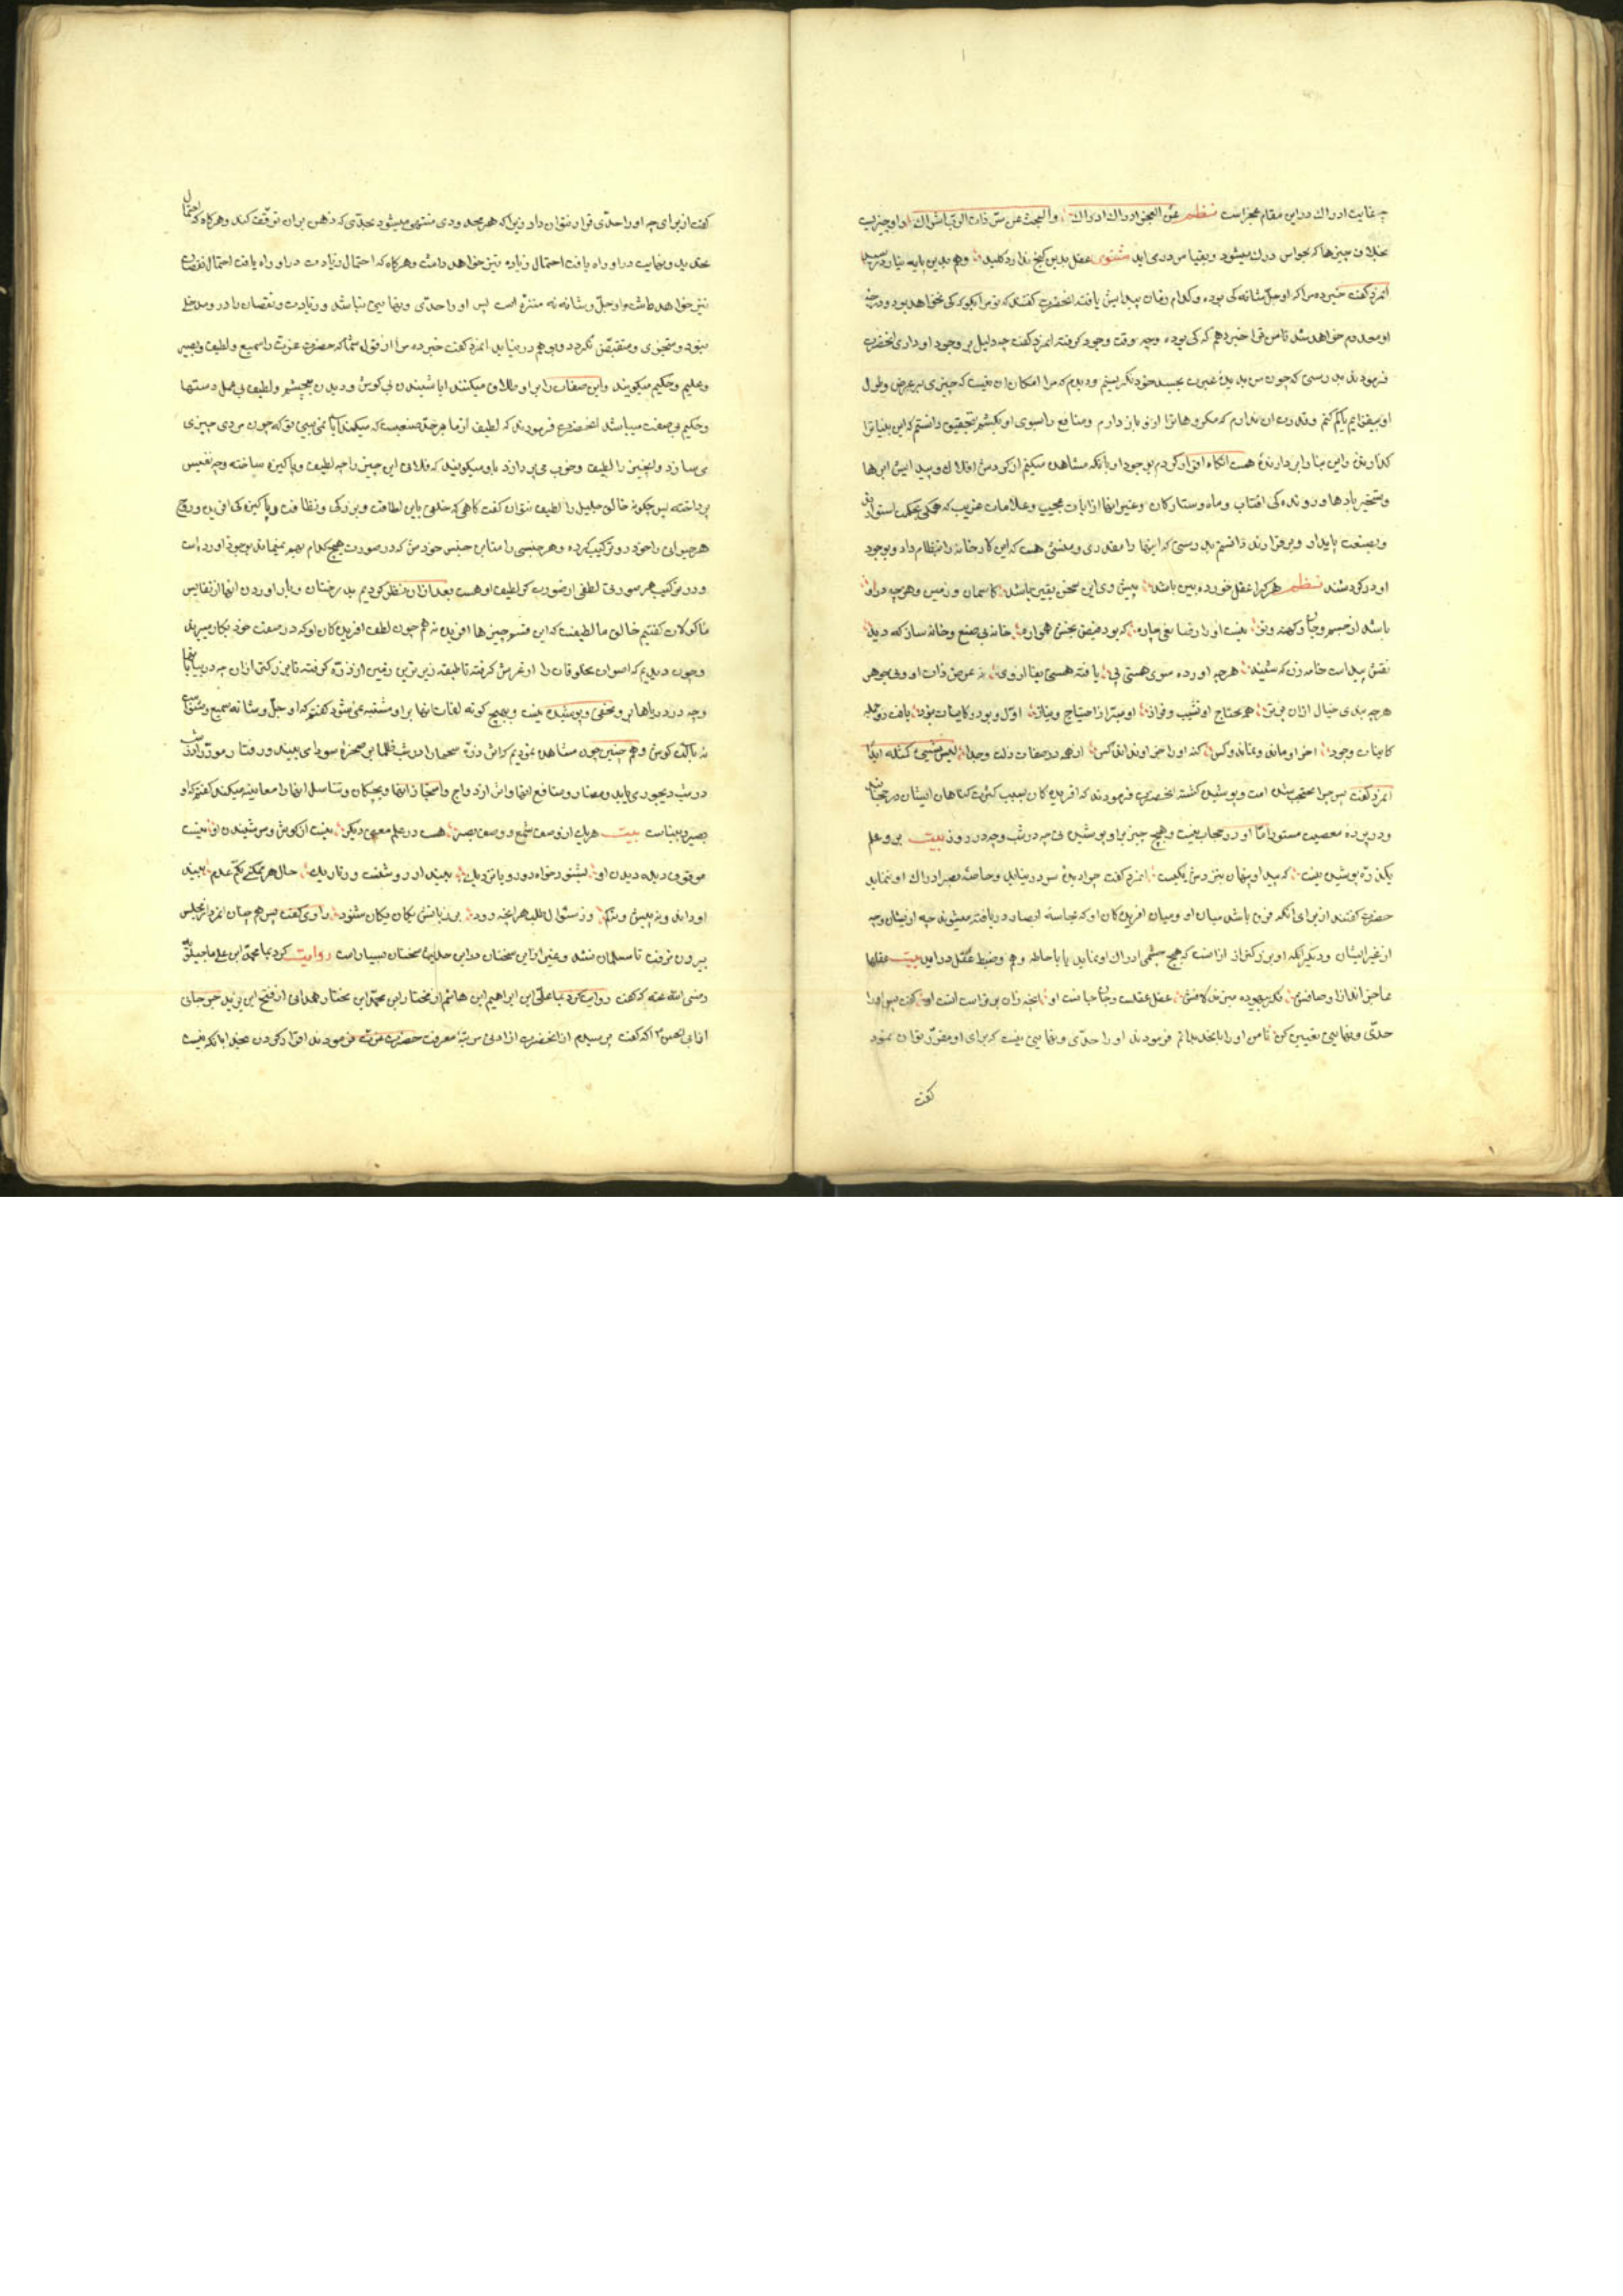 چه غایت ادراك در این مقام عجز است نظم عن العجز ادراك ادراك والبحث عن سر ذات الرب اشراك او از چیزیست
بخلاف چیزها که بحواس درك میشود و بقیاس در می اید مثنوی عقل بدین کنج ندارد کلید وهم بدین پایه نیارد رسید
انمرد کفت خبر ده مرا که او جل شانه کی بوده و کدام زمان پیدایش یافته انحضرت کفتند که تو مرا بکو که کی نخواهد بود و در چه
او معدوم خواهد شد تا من ترا خبر دهم که کی بوده و چه وقت وجود کرفته انمرد کفت چه دلیل بر وجود او داری انحضرت
فرمودند بدرستی که چون من بدیده عبرت بجسد خود نکریستم و دیدم که مرا امکان ان نیست که چیزی بر عرض و طول
او بیفزایم یا کم کنم و قدرت ان ندارم که مکروهات را از او باز دارم و منافع را بسوی او بکشم بتحقیق دانستم که این بنیان را
کذارنده و این بنا را بر دارنده هست انکاه اقرار کردم بوجود او با انکه مشاهده میکنم از کردش افلاك و پیدایش ابرها
و تسخیر بادها و روندکی افتاب و ماه و ستارکان و غیر اینها از ایات عجیب و علامات غریب که بحکمی محکم استوارند
و بصنعت پایدار و برقرارند دانستم بدرستی که اینها را مقدری و منشئ هست که این کارخانه را انتظام داد و بوجود
او در کردشند نظم هر کرا عقل خورده بین باشد پیش وی این سخن یقین باشد کاسمان و زمین و هرچه در او
باشد از جسم و جان و کهنه و نو نیست او را رضا بغی چاره که بود فیض بخش همواره خانه بی صنع و خانه ساز که دید
نقش بیدست خامه زن که شنید هرچه اورده سوی هستی پی یافته هستی بقا از وی نه عرض ذات او و نی جوهر
هرچه بندی خیال ازان برتر همه محتاج او نشیب و فراز او مبرا از احتیاج و نیاز اول و بود و کاینات نبود یافت زو جمله
کاینات وجود اخر او ماند و نماند کس کنه او را جز او نداند کس او همه در صفات ذات وحدا لیس شیئ کمثله ابدا
انمرد کفت پس چرا محتجب شده است و پوشیده کشته انحضرت فرمودند که افریدکان بسبب کثرت کناهان ایشان در حجابند
و در پرده معصیت مستور اما او در حجاب نیست و هیچ چیز بر او پوشیده نی چه در شب و چه در روز بیت بر و علم
یکذره پوشیده نیست که پیدا و پنهان بنزدش یکیست انمرد کفت چرا دیده سر در نیابد و حاسه بصر ادراك او ننماید
حضرت کفتند از برای انکه فرق باشد میان او و میان افریدکان او که بحاسه ابصار دریافته میشوند چه از ایشان و چه
از غیر ایشان و دیکر انکه او بزرکتر از ان است که هیچ چشمی ادراك او نماید یا باحاطه وهم و ضبط عقل در اید بیت عقلها
عاجز اند از اوصافش فکر بیهوده میزند لافش عقل عقلست و جان جانست او انچه زان برتر است انست او کفت پس او را
حدی و نهایتی تعیین کن تا من او را بانحد بدانم فرمودند او را حدی و نهایتی نیست که برای او مقرر توان نمود
کفت
کفت از برای چه او را حدی قرار نتوان داد زیرا که هر محدودی منتهی میشود بحدی که ذهن بران توقف کند و هرکاه که احتمال
تحدید و نهایت در او راه یافت احتمال زیاده نیز خواهد داشت و هرکاه که احتمال زیادت در او راه یافت احتمال نقصان
نیز خواهد داشت و او جل و شانه منزه است پس او را حدی و نهایتی نباشد و زیادت و نقصان را در او مدخلی
نبود و متجزی و متقبض نکردد و بوهم در نیاید انمرد کفت خبر ده مرا از قول شما که حضرت عزت را سمیع و لطیف و بصیر
و علیم و حکیم میکویند و این صفات را بر او اطلاق میکنند ایا شنیدن بی کوش و دیدن بی چشم و لطیف بی عمل دستها
و حکیم بی صنعت میباشد انحضرت فرمودند که لطیف از ما بر حد صنعیست که میکند ایا نمی بینی تو که چون مردی چیزی
می سازد و انچیز را لطیف و خوب می پردازد باو میکویند که فلانی این چیز را چه لطیف و پاکیزه ساخته و چه نفیس
پرداخته پس چکونه خالق جلیل را لطیف نتوان کفت کاهی که خلقی باین لطافت و بزرکی و نظافت و پاکیزه کی افریده و روح
هر حیوانی را خود در ترکیب کرده و هر جنسی را مباین جنس خودش که در صورت هیچ کدام بهم نمیماند بوجود اورده است
و در ترکیب هر صورتی لطفی از صورت کر لطیف او هست بعد ازان نظر کردیم بدرختان و بار اوردن انها از نفایس
ماکولات کفتیم خالق ما لطیفست که این قسم چیزها افریده نه هم چون لطف افریدکان او که در صنعت خود بکار میبرند
و چون دیدیم که اصوات مخلوقات را از عرش کرفته تا طبقه زیرترین زمین از ذره کرفته تا بزرکتر ازان چه در بیابانها
و چه در دریاها بر او مخفی و پوشیده نیست و بهیچ کونه لغات انها بر او مشتبه نمی شود کفتیم که او جل و شانه سمیع و شنواست
نه بآلت کوش و هم چنین چون مشاهده نمودیم که اش ذره سحماء را در شب ظلما بر صخره سودا می بیند و رفتار مور را در
در شب دیجوری یابد و مضار و منافع انها و اثر ازدواج و امتزاج انها و بچکان و تناسل انها را معاینه میکند کفتیم که او
بصیر و بیناست بیت هریك از وصف سمع و وصف بصر هست در علم معنیئ دیکر نیست از کوش و سر شنیدن او نیست
موقوف دیده دیدن او بشنود خواه دور و یا نزدیك بیند ار روشنست و تاریك حال هر ممکنی بکتم عدم بیند
او را بد و نه بیش و نه کم ور سئوال طلب هر انچه رود بی زبانش یکان یکان شنود راوی کفت پس هم چنان انمرد از مجلس
بیرون نرفت تا مسلمان نشد و غیر از این سخنان در این حدیث سخنان بسیار است روایت کرد بما محمد ابن علی ماجیلویه
رضی الله عنه که کفت روایت کرد بما علی ابن ابراهیم ابن هاشم از مختار ابن محمد ابن مختار همدانی از فتح ابن یزید جرجانی
از ابی الحسن که کفت پرسیدم از انحضرت از ادنی مرتبه معرفت حضرت عزت فرمودند اقرار کردن بخدا بانکه نیست